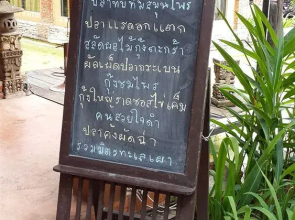 ปลาทับทิมสมุนไพร
ปลาแรดอกแตก
สลัดผลไม้กุ้งตะกร้า
ผัดเผ็ดปลากระเบน
กุ้งชมไพร
กุ้งใหญ่ราดซอสไข่เค็ม
คนสวยใจดำ
ปลาคังผัดฉ่า
รวมมิตรทะเลเผา